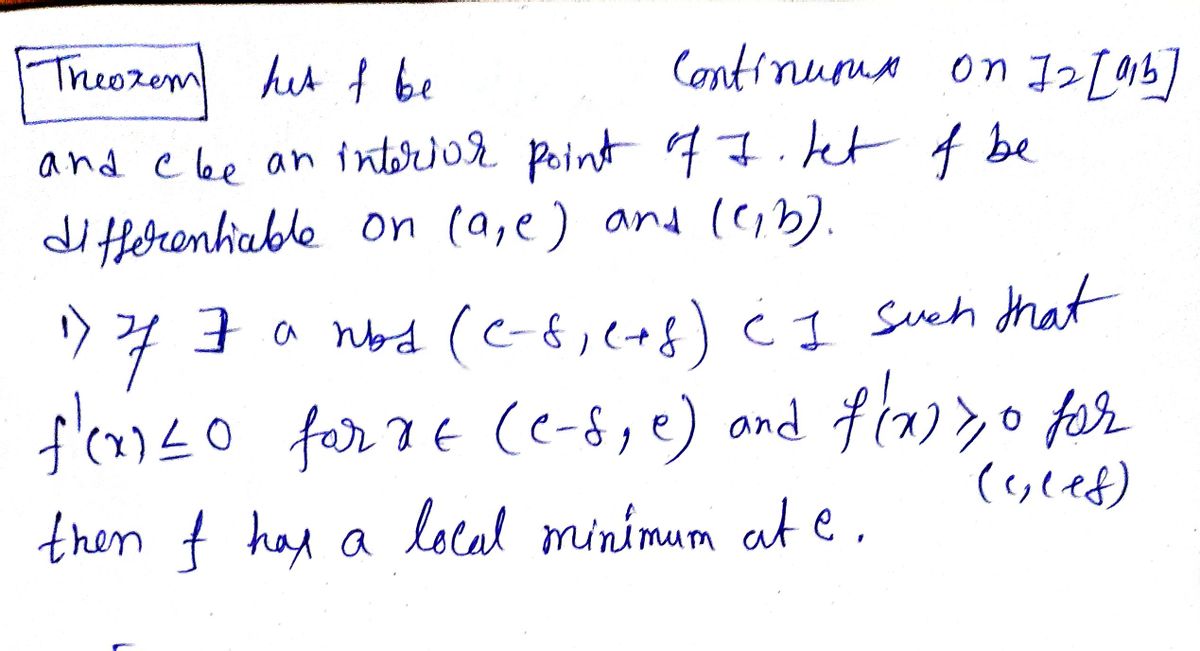 Theorem Let f be continuous on I=[a,b]
and c be an interior point of I. Let f be
differentiable on (a,c) and (c,b).
1) If ∃ a nbd (c-δ, c+δ) ⊂ I such that
f'(x) ≤ 0 for x ∈ (c-δ, c) and f'(x) ≥ 0 for
(c, c+δ)
then f has a local minimum at c.